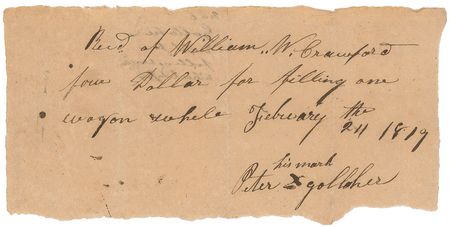 Recd. of William. W. Crawford
four Dollar for filling one
wagon whele February the
24 1819
his mark
Peter X gollcher